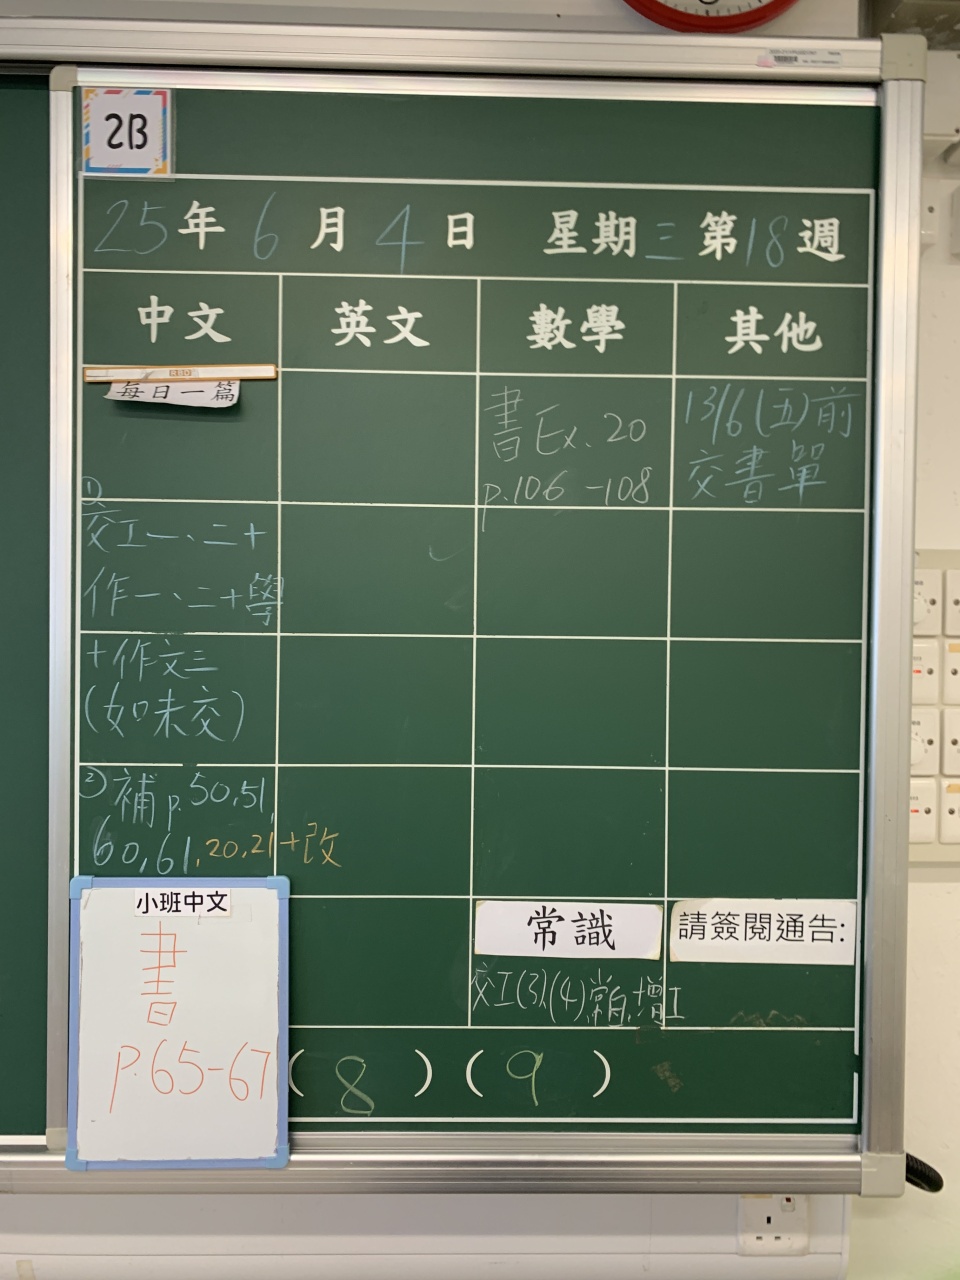 2B
25年 6 月 4 日 星期三 第18週
中文 英文 數學 其他
每日一篇
①
交工一、二+
作一、二+學
+作文三
(如未交)
② 補 p.50,51,
60,61,20,21+改
小班中文
書
p.65-67
書 Ex. 20
p.106-108
13/6(五)前
交書單
常識
交工(3)(4),常自,增工
請簽閱通告:
( 8 ) ( 9 )